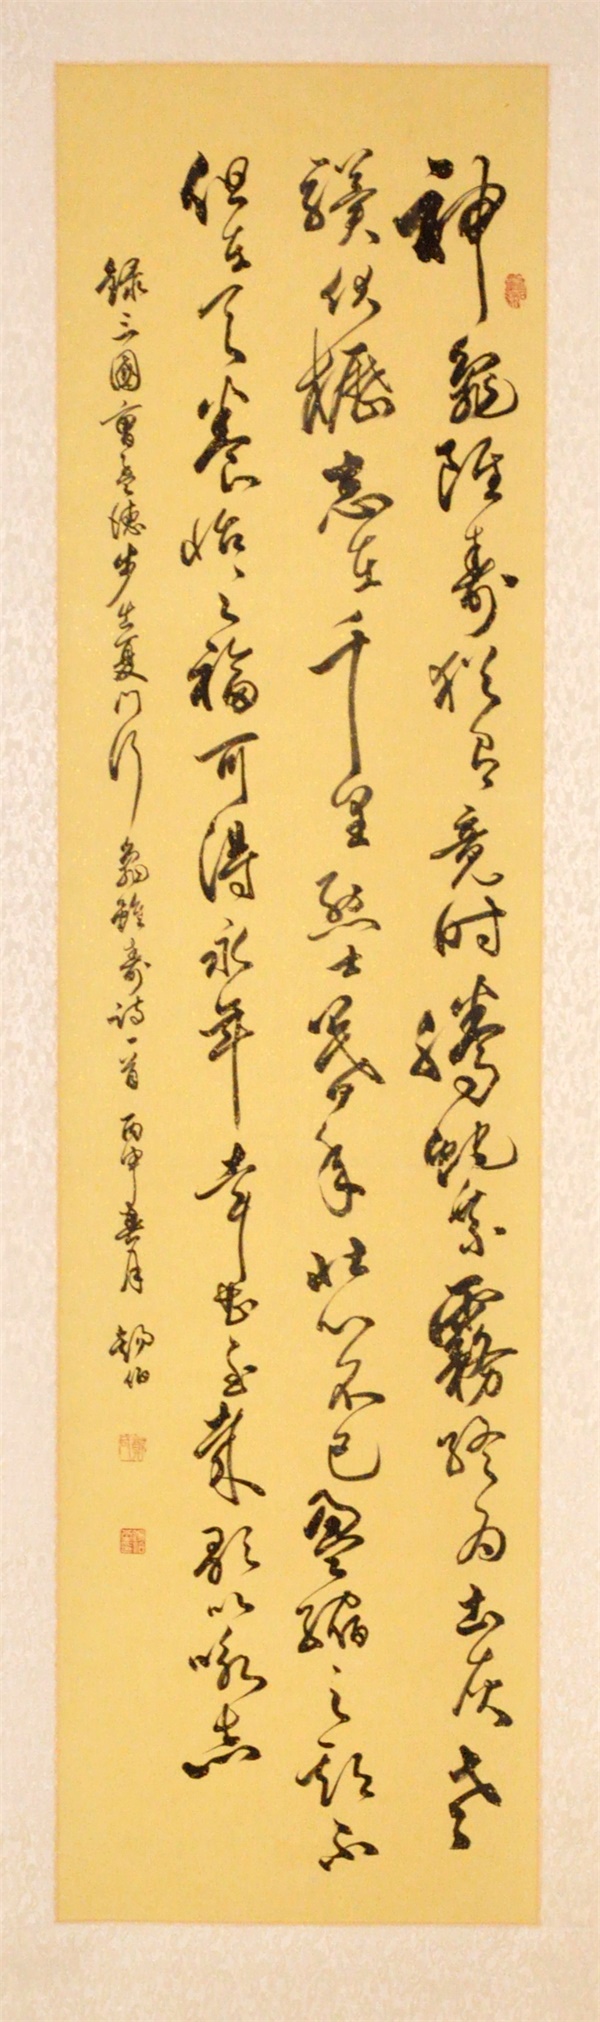 神龜雖壽猶有竟時騰蛇乘霧終為土灰老
驥伏櫪志在千里烈士暮年壯心不已盈縮之期不
但在天養怡之福可得永年幸甚至哉歌以咏志
錄三國曹孟德步出夏門行龜雖壽詩一首丙申春月